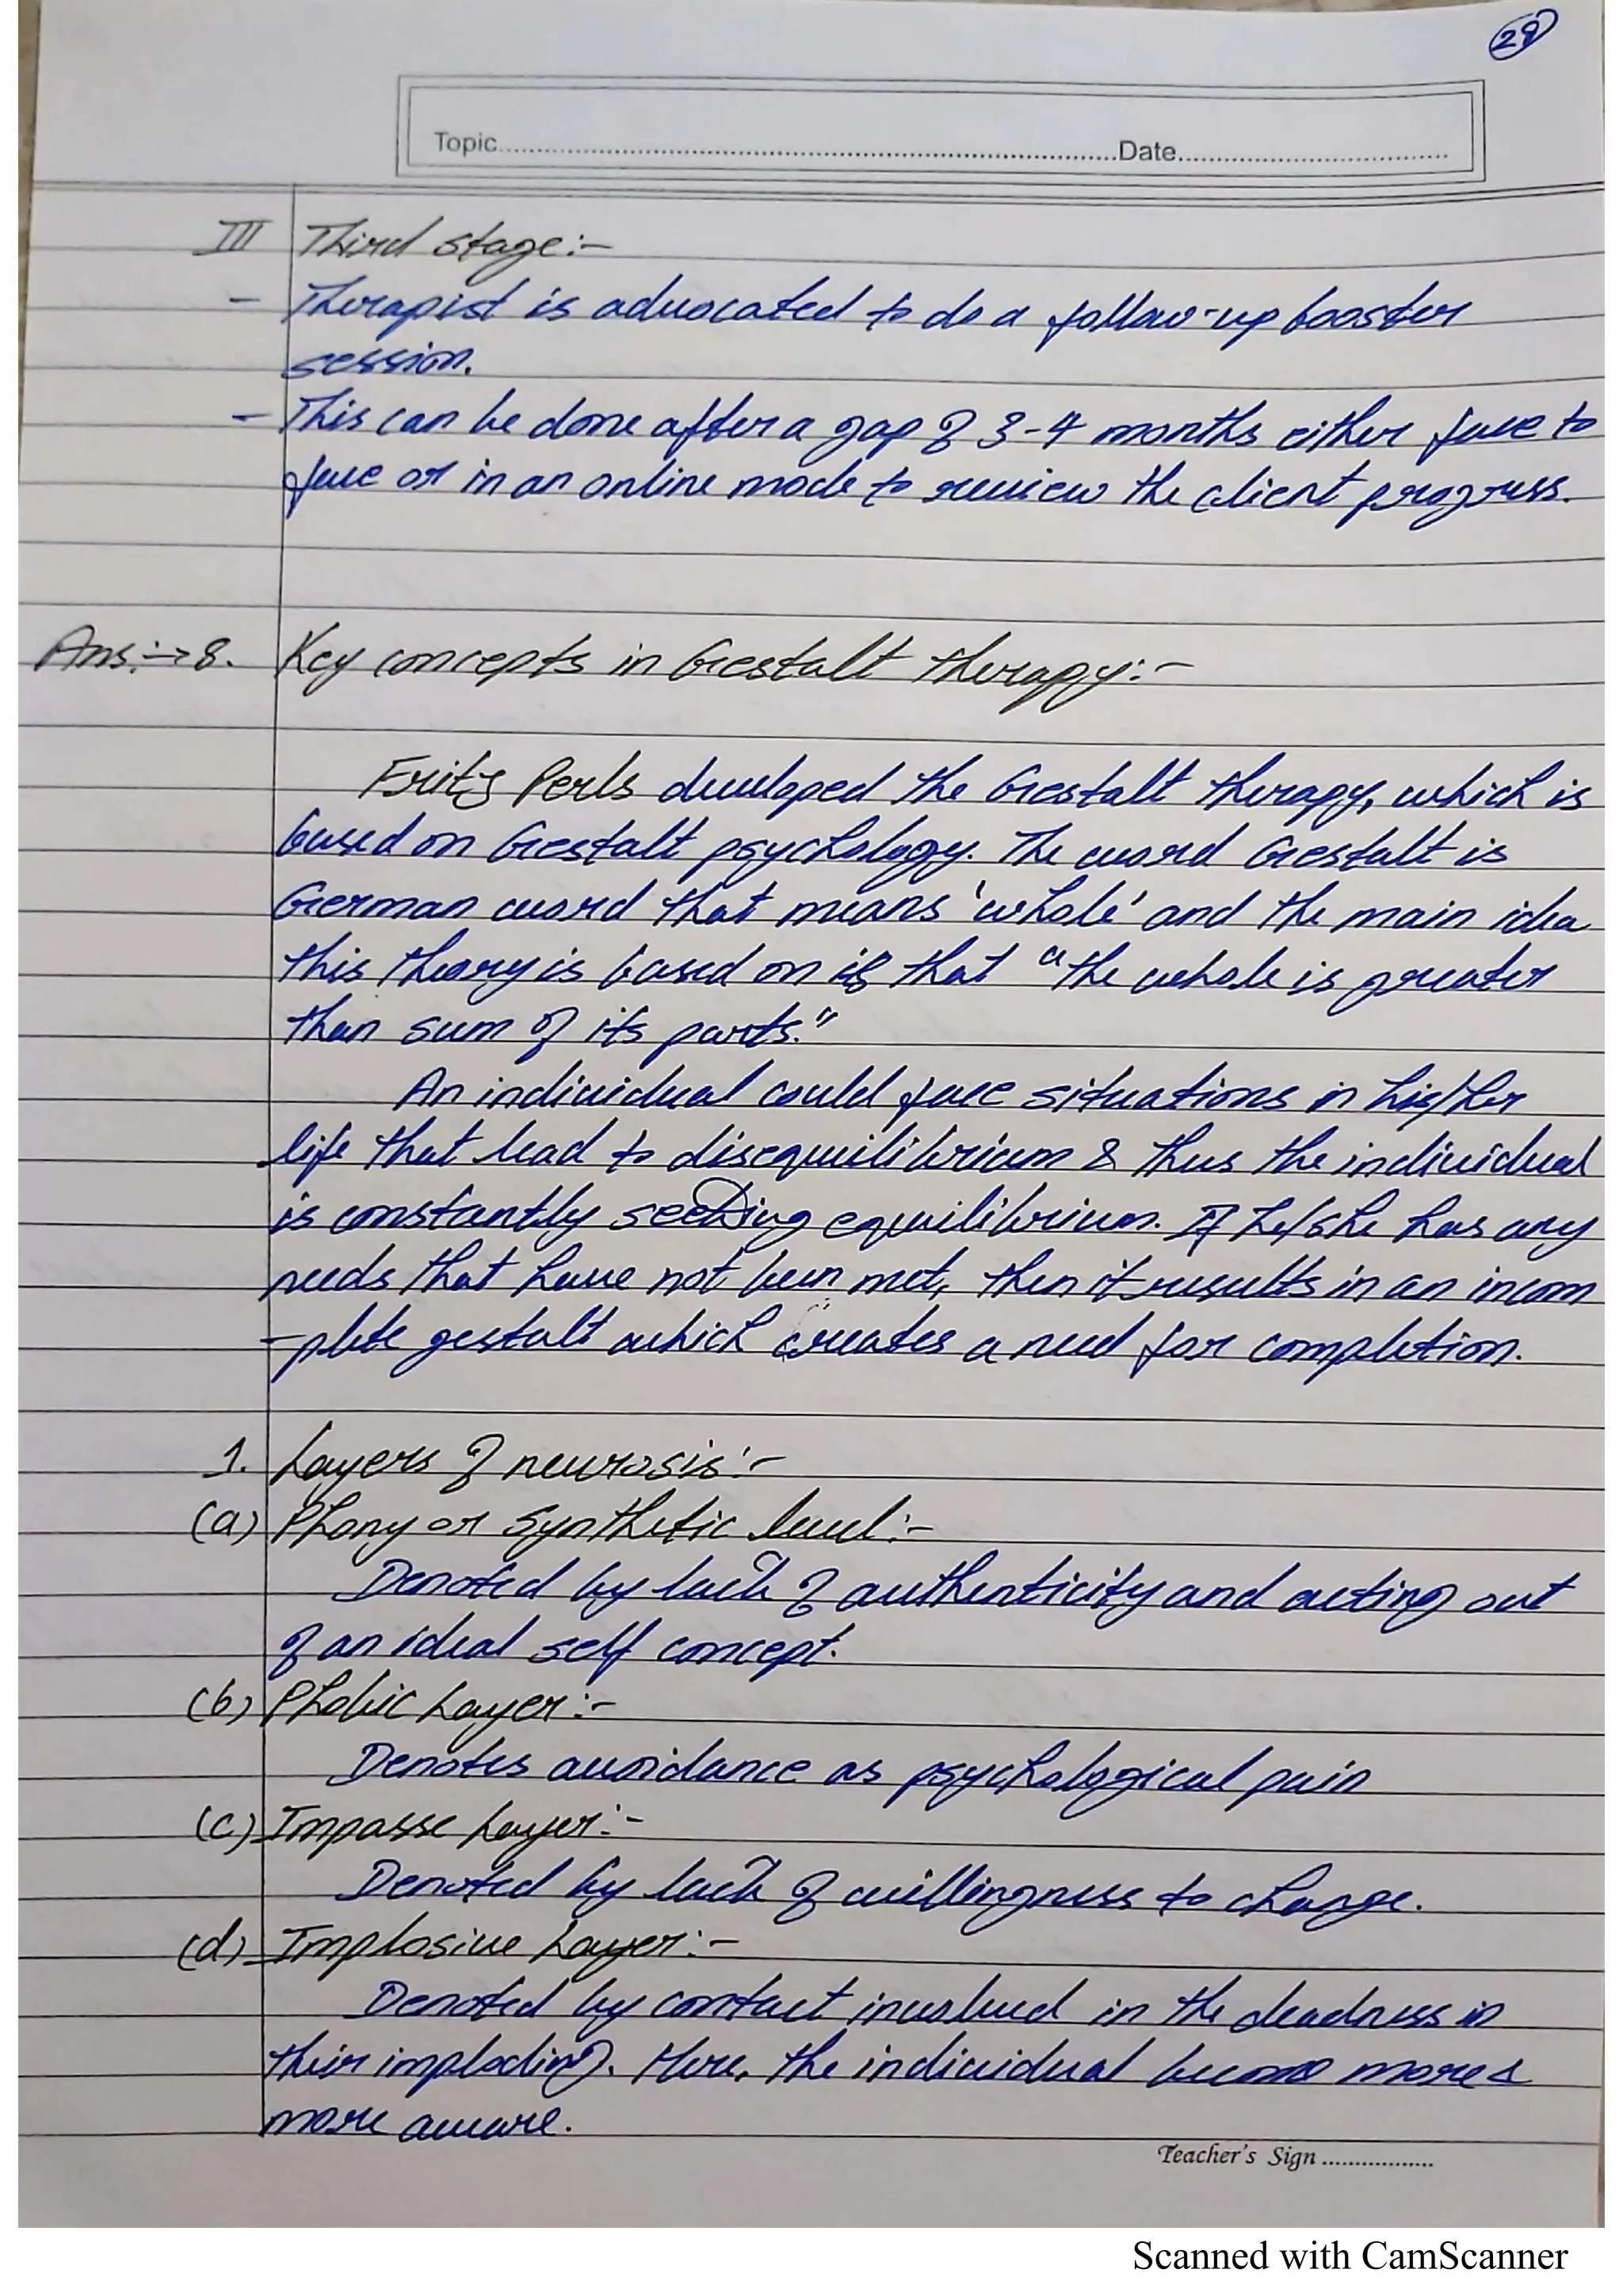 28
Topic.......................................................Date...............................
III Third stage:-
- Therapist is advocated to do a follow-up booster
session.
- This can be done after a gap of 3-4 months either face to
face or in an online mode to review the client progress.
Ans:→8. Key concepts in Gestalt therapy:-
Fritz Perls developed the Gestalt therapy, which is
based on Gestalt psychology. The word Gestalt is
German word that means 'whole' and the main idea
this theory is based on is that "the whole is greater
than sum of its parts."
An individual could face situations in his/her
life that lead to disequilibrium & thus the individual
is constantly seeking equilibrium. If he/she has any
needs that have not been met, then it results in an incom
-plete gestalt which creates a need for completion.
1. Layers of neurosis:-
(a) Phony or Synthetic level:-
Denoted by lack of authenticity and acting out
of an ideal self concept.
(b) Phobic Layer:-
Denotes avoidance as psychological pain
(c) Impasse Layer:-
Denoted by lack of willingness to change.
(d) Implosive Layer:-
Denoted by contact involved in the deadness in
their imploding. Here, the individual become more &
more aware.
Teacher's Sign ..................
Scanned with CamScanner